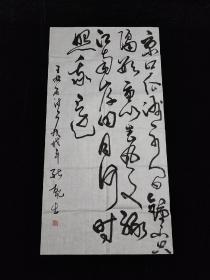 京口瓜洲一水间鍾山只
隔数重山春风又绿
江南岸明月何时
照我还
王安石诗